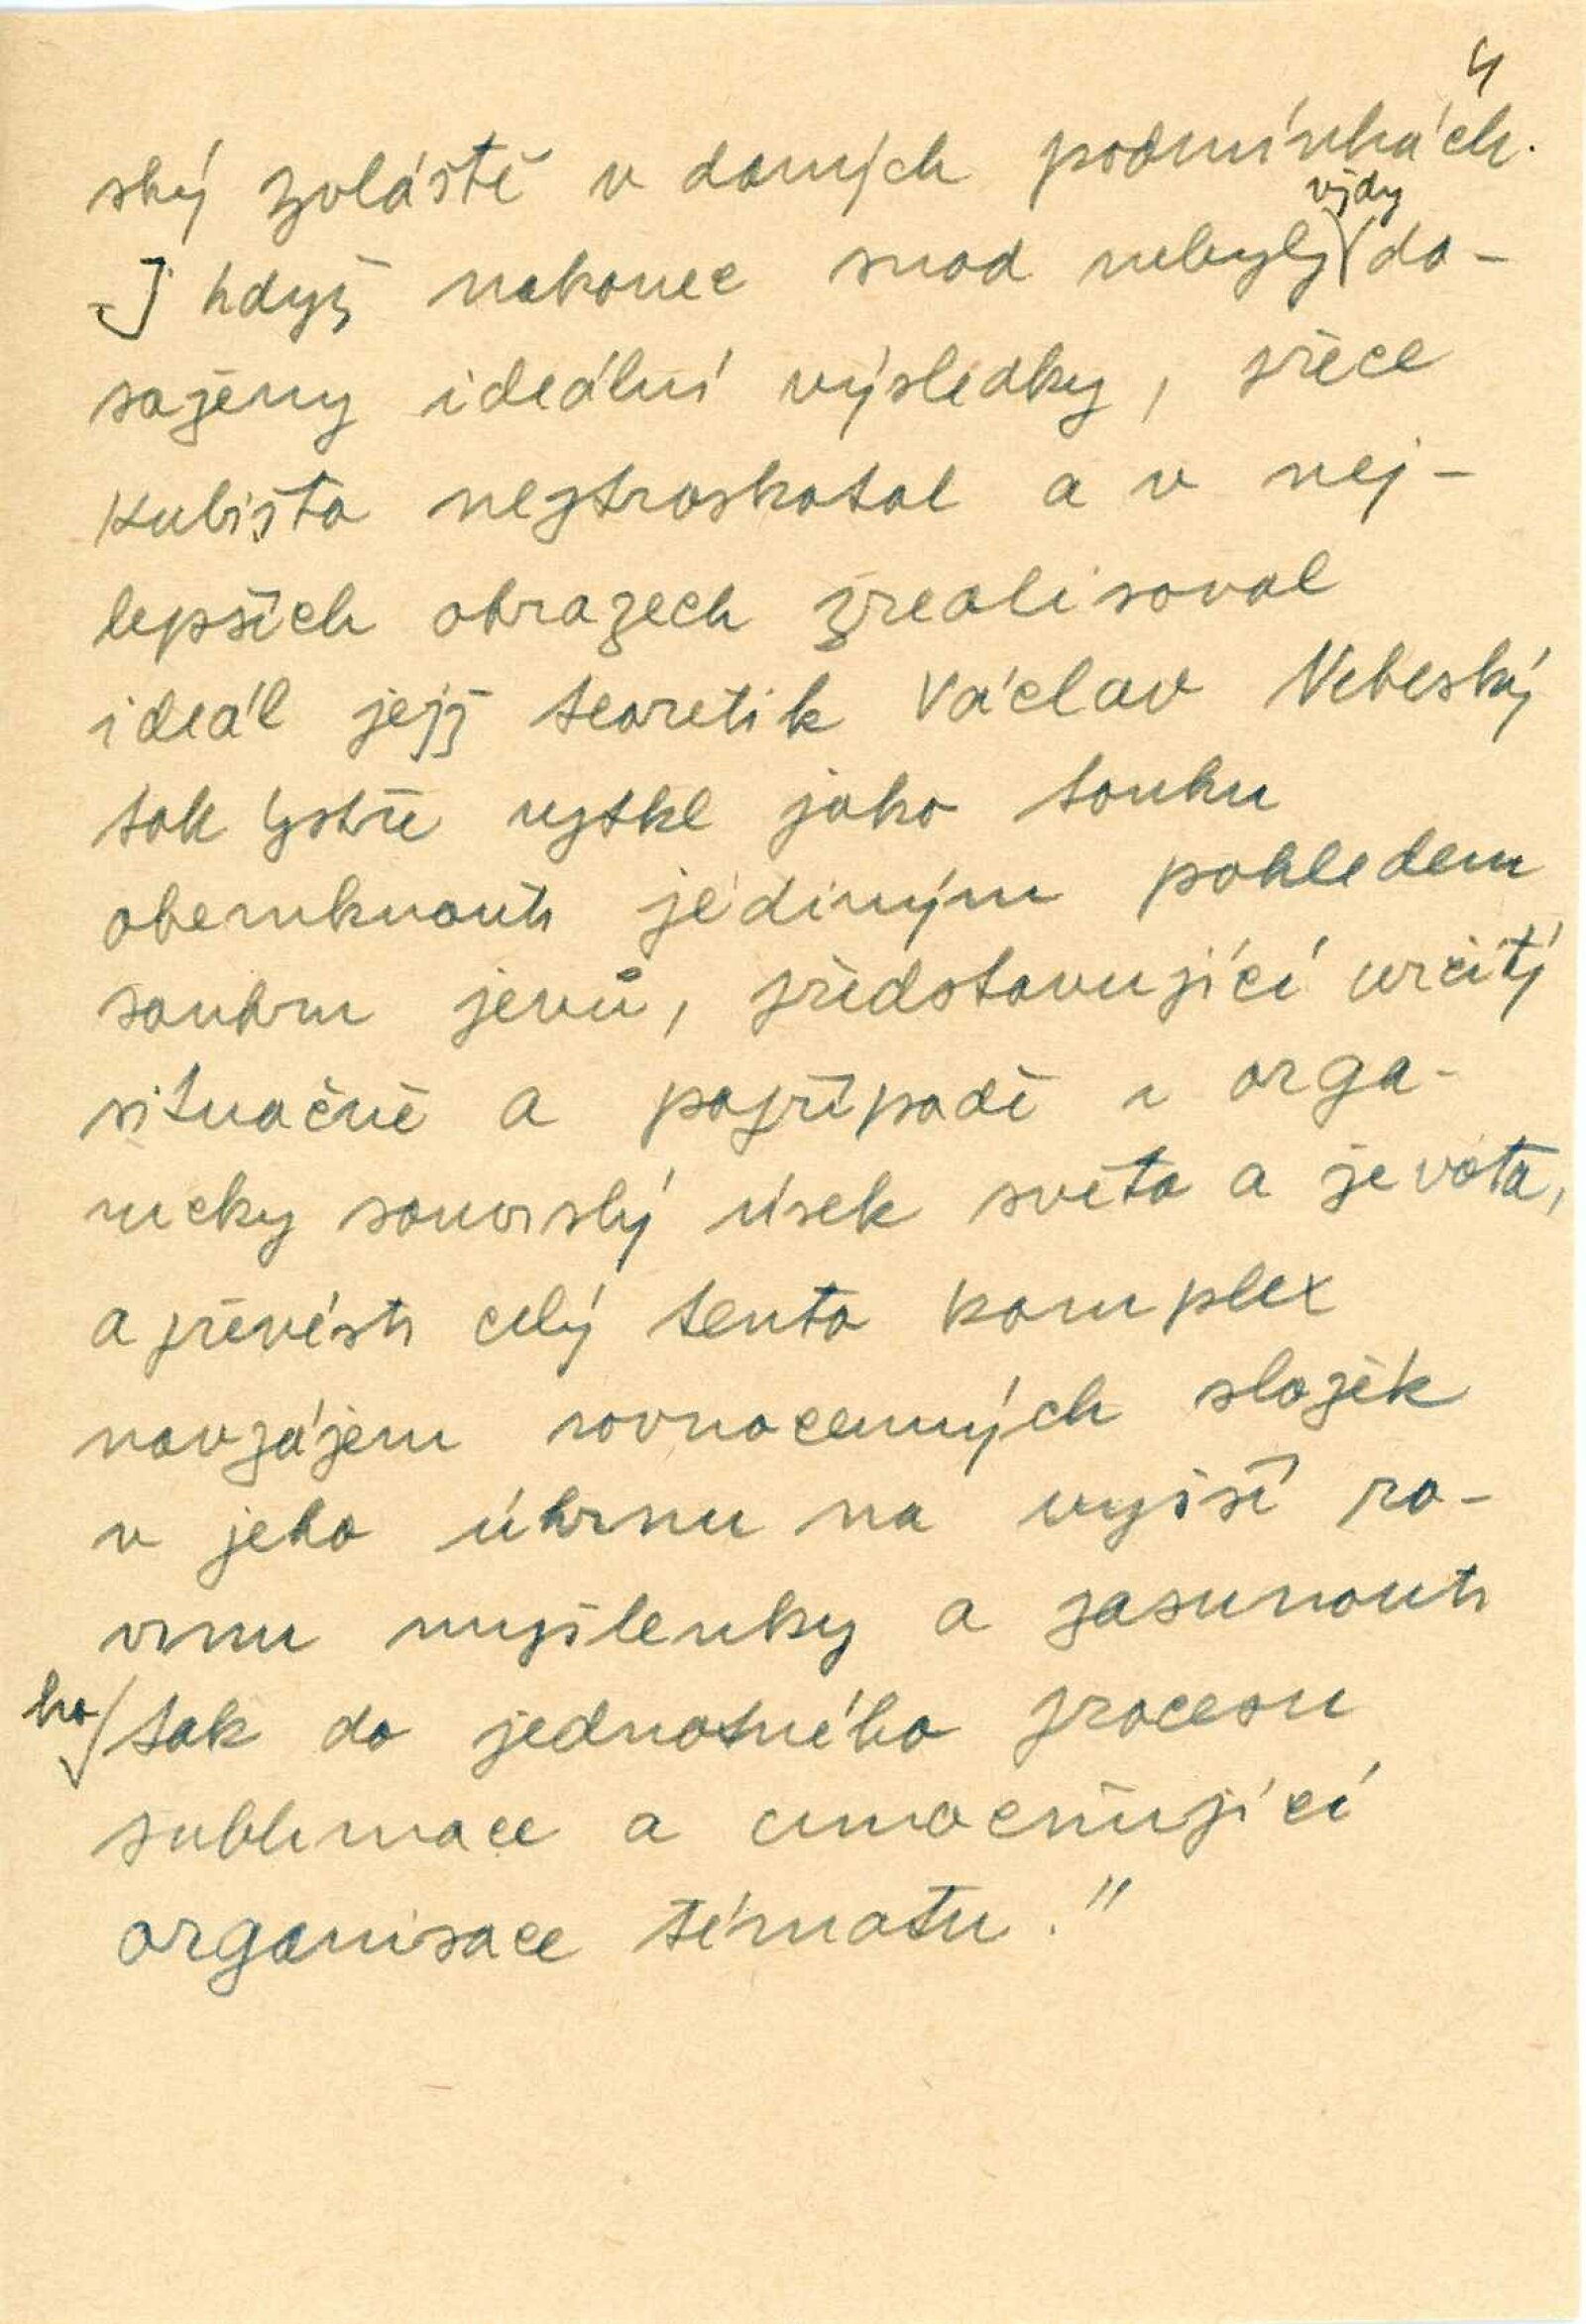 4
ský zvláště v daných podmínkách.
I když nakonec snad nebyly vždy do-
saženy ideální výsledky, přece
Kubišta neztroskotal a v nej-
lepších obrazech zrealisoval
ideál jejž teoretik Václav Nebeský
tak bystře vytkl jako touhu
obemknouti jediným pohledem
souhrn jevů, představující určitý
situačně a popřípadě i orga-
nicky souvislý úsek světa a života,
a převésti celý tento komplex
navzájem rovnocenných složek
v jeho úhrnu na vyšší ro-
vinu myšlenky a zasunouti
ho tak do jednotného procesu
sublimace a umocňující
organisace tématu."